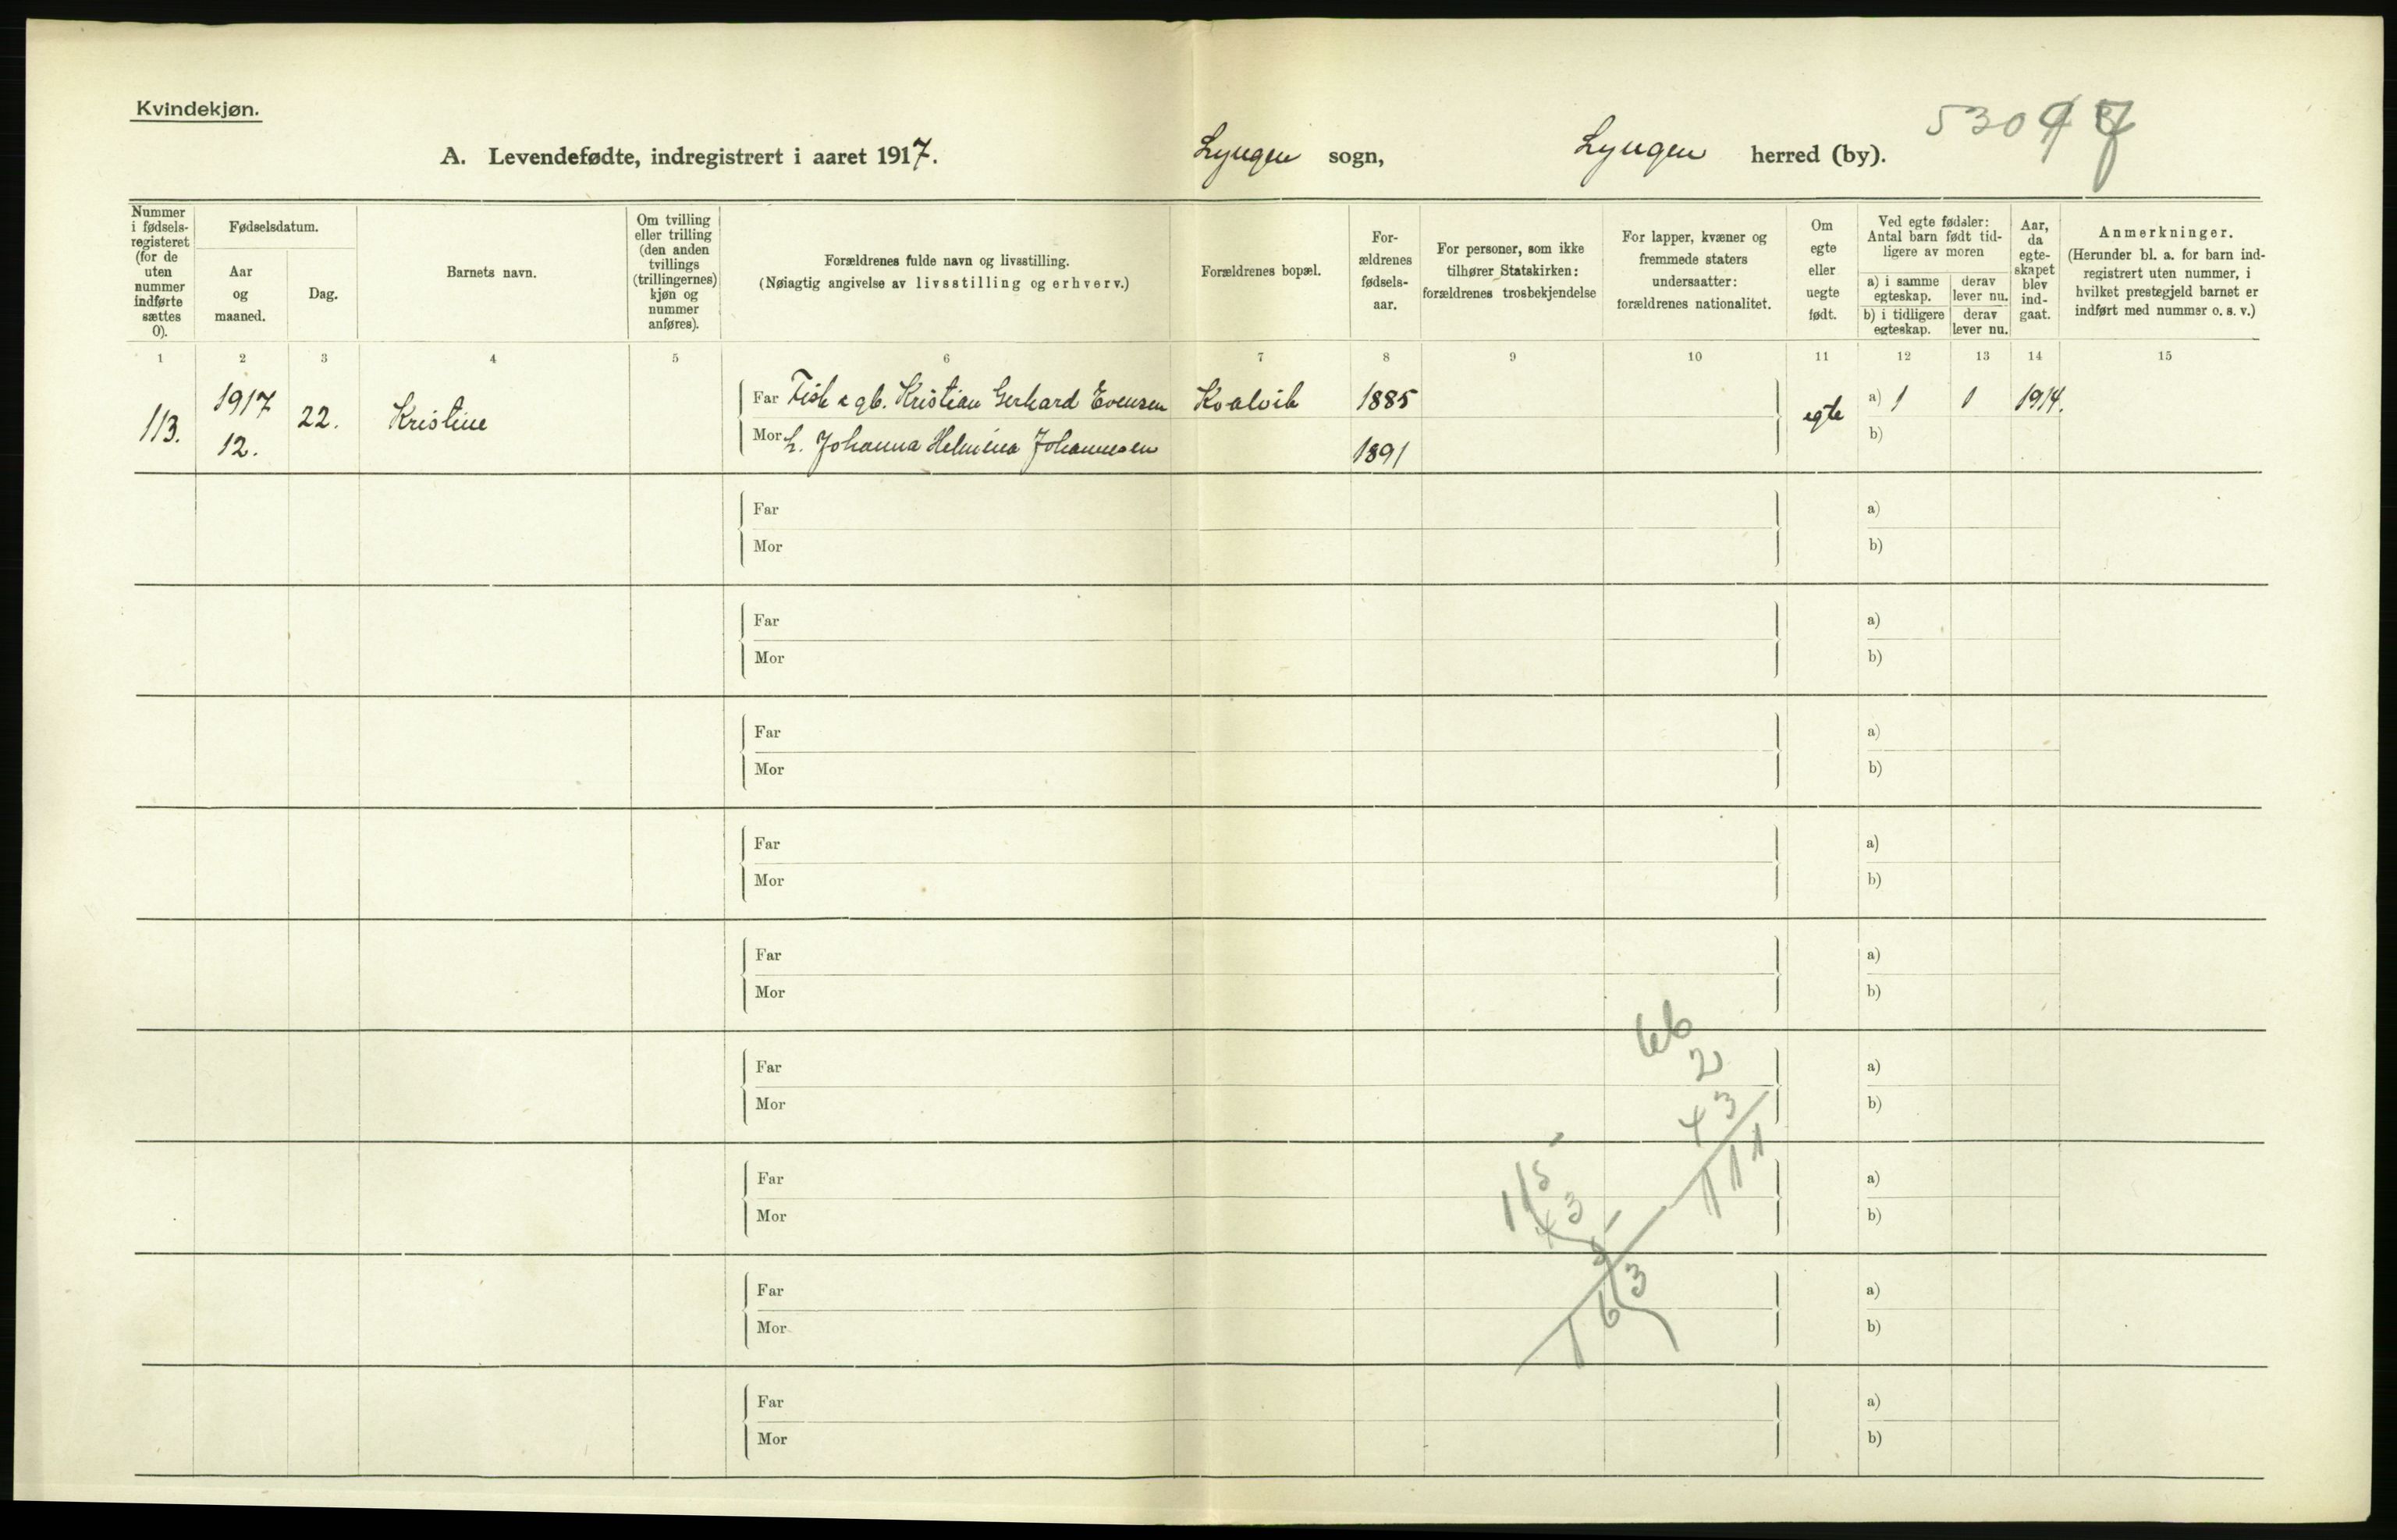 Kvindekjøn.
A. Levendefødte, indregistrert i aaret 1917. Lyngen sogn, Lyngen herred (by).
Nummer i fødsels-registeret (for de uten nummer indførte sættes 0).
Fødselsdatum.
Aar og maaned.
Dag.
Barnets navn.
Om tvilling eller trilling (den anden tvillings (trillingernes) kjøn og nummer anføres).
Forældrenes fulde navn og livsstilling.
(Nøiagtig angivelse av livsstilling og erhverv.)
Forældrenes bopæl.
For-ældrenes fødsels-aar.
For personer, som ikke tilhører Statskirken: forældrenes trosbekjendelse
For lapper, kvæner og fremmede staters undersaatter: forældrenes nationalitet.
Om egte eller uegte født.
Ved egte fødsler: Antal barn født tid-ligere av moren
a) i samme egteskap.
derav lever nu.
b) i tidligere egteskap.
derav lever nu.
Aar, da egte-skapet blev ind-gaat.
Anmerkninger.
(Herunder bl. a. for barn ind-registrert uten nummer, i hvilket prestegjeld barnet er indført med nummer o. s. v.)
1 2 3 4 5 6 7 8 9 10 11 12 13 14 15
113. 1917 12. 22. Kristine
Far Fisk & gb. Kristian Gerhard Evensen Kvalvik 1885 egte a) 1 1 1914.
Mor h. Johanna Helmina Johannesen 1891 b)
Far a)
Mor b)
Far a)
Mor b)
Far a)
Mor b)
Far a)
Mor b)
Far a)
Mor b)
66
2
Far a)
Mor b)
43
111
115
43
Far a)
Mor b)
5
163
Far a)
Mor b)
Far a)
Mor b)